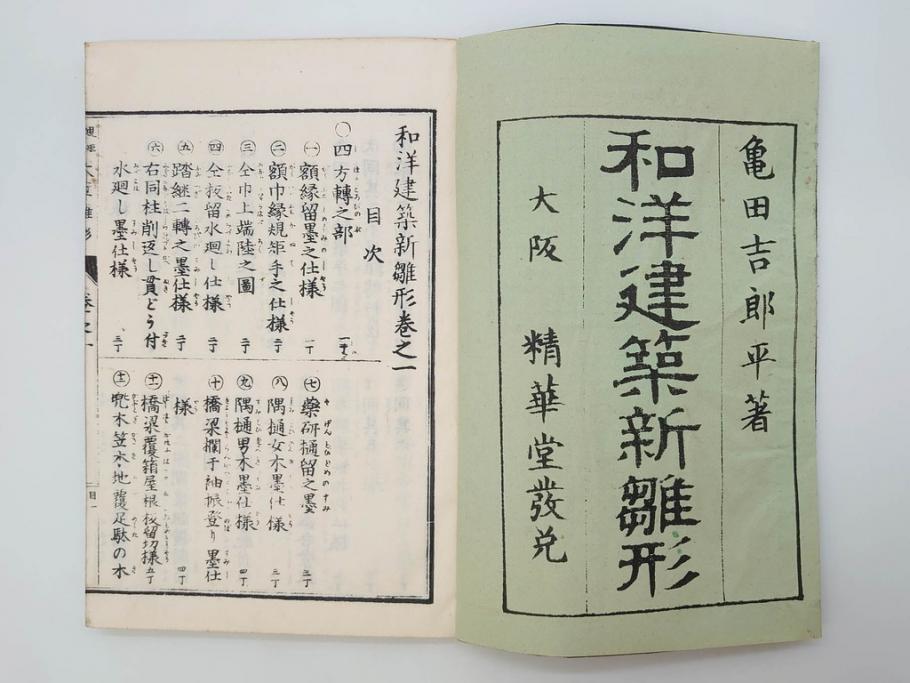 亀田吉郎平著
和洋建築新雛形
大阪 精華堂發兌
和洋建築新雛形巻之一
目次
〇四方轉之部
㊀額縁留墨之仕様 一丁
㊁額巾縁規矩手之仕様 二丁
㊂仝巾上端陸之圖 二丁
㊃仝扳留水廻し仕様 二丁
㊄踏継二轉之墨仕様 二丁
㊅右同柱削返し貫どう付
水廻し墨仕様 二丁
㊆藥研樋留之墨 三丁
㊇隅樋女木墨仕様 三丁
㊈隅樋男木墨仕様 四丁
㊉橋梁欄干袖振登り墨仕
様 四丁
橋梁覆箱屋根板留切様 五丁
兜木笠木・地覆足駄の木